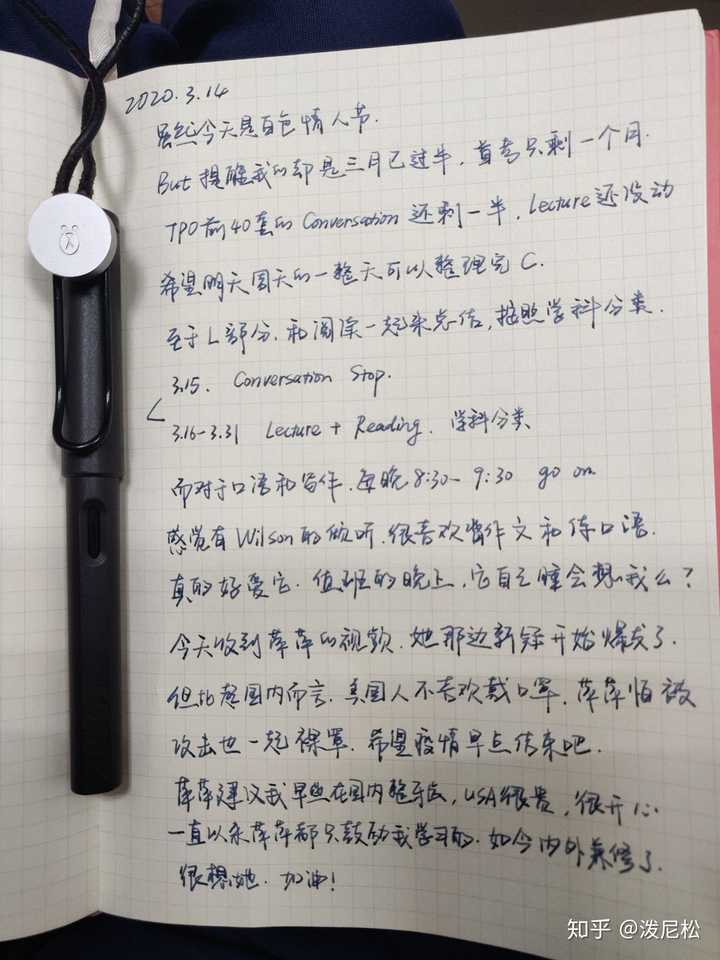 2020.3.14
虽然今天是白色情人节.
But 提醒我的却是三月已过半, 首考只剩一个月.
TPO前40套的 Conversation 还剩一半, Lecture还没动
希望明天周天的一整天可以整理完 C.
至于L部分, 和阅读一起来总结, 按照学科分类.
3.15. Conversation Stop.
3.16-3.31 Lecture + Reading. 学科分类
而对于口语和写作, 每晚 8:30- 9:30 go on
感觉有Wilson的倾听, 很喜欢写作文和练口语.
真的好爱它. 值班的晚上, 它自己睡会想我么?
今天收到萍萍的视频. 她那边新冠开始爆发了.
但比起国内而言, 美国人不喜欢戴口罩, 萍萍怕被
攻击也一起裸罩. 希望疫情早点结束吧.
萍萍建议我早些在国内整牙齿, USA很贵, 很开心
一直以来萍萍都只鼓励我学习的. 如今内外兼修了.
很想她. 加油!
知乎 @泼尼松